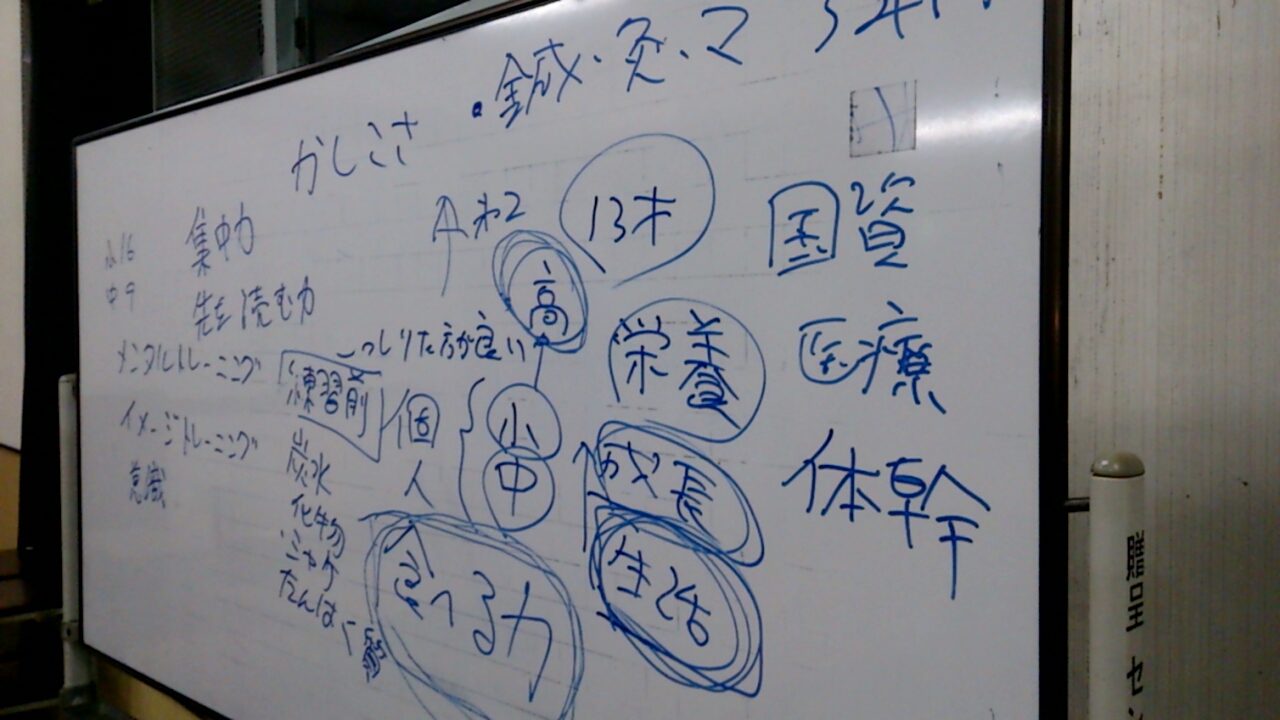 ・鍼・灸・マ 3年間
かしこさ
小16
中9
集中力
先を読む力
メンタルトレーニング
イメージトレーニング
意識
練習前
炭水
化物
シャケ
たんぱく質
こっしりた方が良い
個
人
小
中
高
13才
栄養
成長
生活
食べる力
国資
医療
体幹